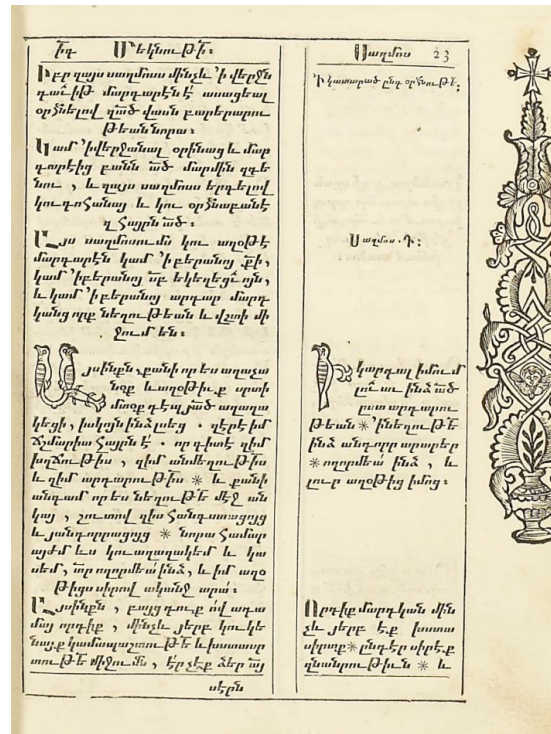 Մեկնութի։
մինչև ՚ի վերջն
մարգարէն է ասացեալ
օրհնելով զած վասն բարերարու
թեան նորա։
Կամ ՚ի վերջանալ օրինաց և մար
գարէից բանն ած մարմին զգե
նու , և զայս սաղմոս երգելով
կու գոհանայ և կու օրհնաբանէ
զՀայրն ած։
Այս սաղմոսումս կու աղօթէ
մարգարէն կամ ՚ի բերանոյ քի,
կամ ՚ի բերանոյ սբ եկեղեցւոյն,
և կամ ՚ի բերանոյ արդար մարդ
կանց որք նեղութեան և վշտի մի
ջում են։
Այսինքն, քանի որ ես աղաչա
նօք և աղօթիւք սրտի
մտօք դէպ յած աղաղա
կեցի, իսկոյն ինձ լսեց ·
ճշմարիտ Հայրն է · որ գիտէ զիմ
խղճութիս , զիմ անմեղութիս
և զիմ արդարութիս * և քանի
անգամ որ ես նեղութե մէջ ան
կայ , շուտով զիս հանգստացոյց
և յանդորրացոյց * նորա համար
այժմ ևս կու աղաղակեմ և կա
սեմ, տր ողորմեա ինձ, և իմ աղօ
թիցս սիրով ականջ արա։
Այսինքն , բայց դուք ով ադա
մայ որդիք , մինչև յերբ կու կե
նայք կամապաշտութե և խստասր
տութե միջումն , էր չէք ձեր այ
սէրն
Սաղմոս 23
՚Ի կատարած ընդ օրհնութե։
Սաղմոս · Դ։
Ի կարդալ իմում
լուաւ ինձ ած
ըստ արդարու
թեան * ՚ի նեղութե
ինձ անդորր արարեր
* ողորմեա ինձ , և
լուր աղօթից իմոց։
Որդիք մարդկան մին
չև յերբ էք խստա
սիրտք * ընդէր սիրէք
զնանրութիւն * և